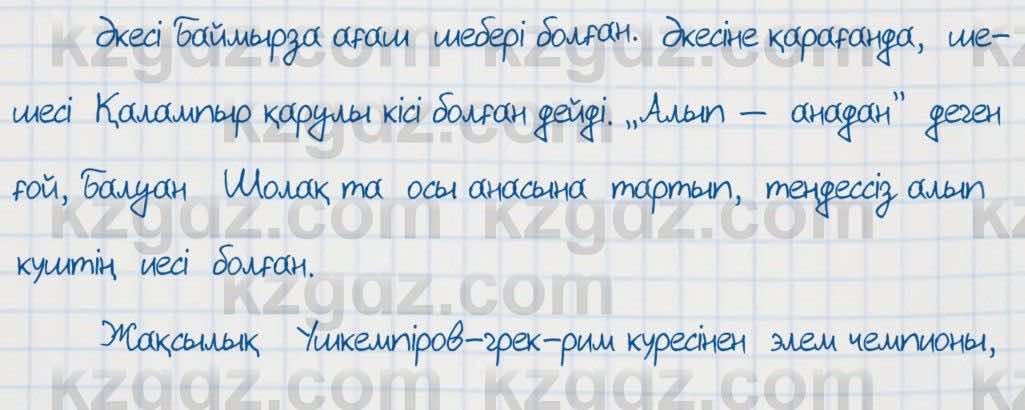 Әкесі Баймырза ағаш шебері болған. Әкесіне қарағанда, ше-
шесі Қалампыр қарулы кісі болған дейді. „Алып — анадан" деген
ғой, Балуан Шолақ та осы анасына тартып, теңдессіз алып
күштің иесі болған.
Жақсылық Үшкемпіров-грек-рим күресінен әлем чемпионы,
kzgdz.com